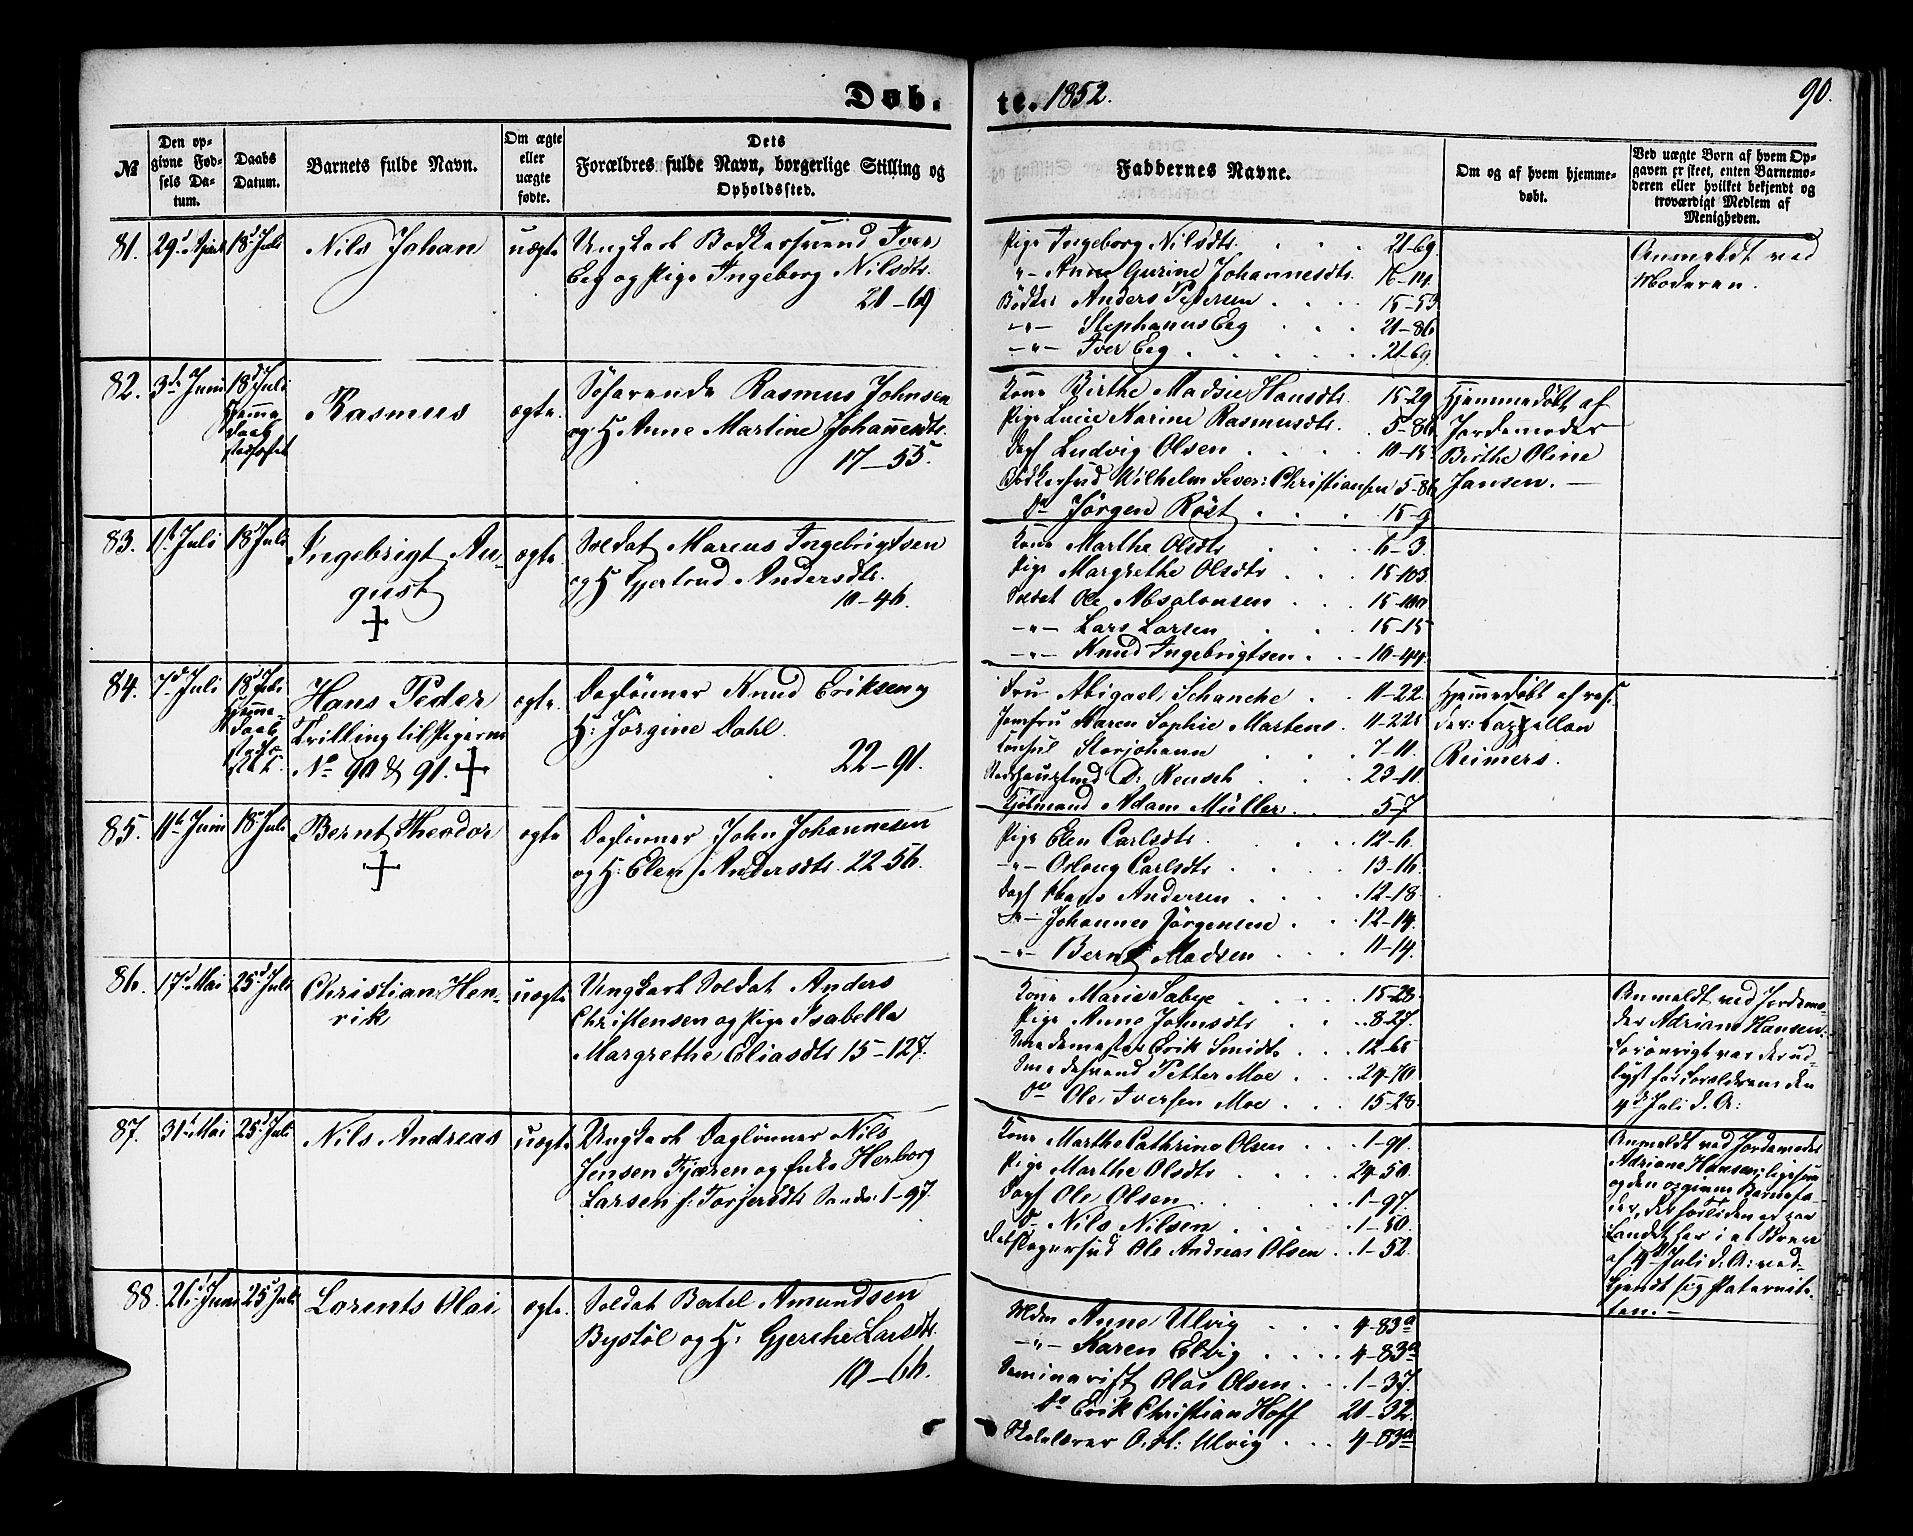 Døb.
te. 1852.
90.
№
Den op-
givne Fød-
sels Da-
tum.
Daabs
Datum.
Barnets fulde Navn.
Om ægte
eller
uægte
fødte.
Dets
Forældres fulde Navn, borgerlige Stilling og
Opholdssted.
Faddernes Navne.
Om og af hvem hjemme-
døbt.
Ved uægte Børn af hvem Op-
gaven er skeet, enten Barnemo-
deren eller hvilket bekjendt og
troværdigt Medlem af
Menigheden.
81. 29d April 18d Juli
Nils Johan
uægte
Ungkarl Bødkersvend Iver
Eeg og Pige Ingeborg Nilsdtr.
21-69
Pige Ingeborg Nilsdtr. 21-69.
-"- Anne Gurine Johannesdtr. 16-14.
Bødker Anders Pedersen 15-53
-"- Stephanus Eeg 21-86
-"- Iver Eeg 21-69.
Anmeldt ved
Moderen.
82. 3de Juni 18d Juli
Hjemme-
daab
stadfæstet
Rasmus
ægte.
Søfarende Rasmus Johnsen
og H. Anne Martine Johannesdtr.
17-55.
Kone Birthe Madsie Hansdtr. 15-29
Pige Lucie Karine Rasmusdtr. 5-86
Dagl Ludvig Olsen 10-15.
Bødkersvd Wilhelm Sever: Christiansen 5-86
do Jørgen Röst 15-9
Hjemmedøbt af
Jordemoder
Birthe Oline
Jansen.
83. 1ste Juli 18d Juli
Ingebrigt Au-
gust
ægte.
Soldat Marcus Ingebrigtsen
og H. Gjertrud Andersdtr.
10-46.
Kone Marthe Olsdtr 6-3.
Pige Margrethe Olsdtr 15-103.
Soldat Ole Absalonsen 15-100
-"- Lars Larsen 15-15
-"- Knud Ingebrigtsen 10-44.
84. 7d Juli 18d Juli
Hjemme-
daab
stadfæ-
stet.
Hans Peder
Trilling til Pigerne
No 90 & 91.
ægte.
Daglønner Knud Eriksen og
H: Jørgine Dahl.
22-91.
Fru Abigael Schanche 11-22.
Jomfru Karen Sophie Martens 11-22
Consul Storjohann 7-11.
D: Rensch 23-11
Kjøbmand Adam Müller 5-7
Hjemmedøbt af resi-
der: Cappellan
Reimers.
85. 11te Juni 18d Juli
Bernt Theodor
ægte
Daglønner John Johannesen
og H: Elen Andersdtr. 22-56.
Pige Elen Carlsdtr. 12-6.
-"- Oslaug Carlsdtr. 13-16.
Dagl Hans Andersen 12-18
-"- Johannes Jørgensen 12-14
-"- Bernt Madsen 11-14.
86. 17d Mai 25d Juli
Christian Hen-
rik
uægte
Ungkarl Soldat Anders
Christensen og Pige Isabella
Margrethe Eliasdtr. 15-127.
Kone Marie Sabye 15-28
Pige Anne Johnsdtr 8-27.
Smedemester Erik Smidt 12-65
Smedesvend Petter Moe 24-70
do Ole Iversen Moe 15-28.
Anmeldt ved Jordemo-
der Adriane Hansen.
Forøvrigt var der ud-
lyst for Forældrene den
4de Juli d. A:
87. 31te Mai 25d Juli
Nils Andreas
uægte
Ungkarl Daglønner Nils
Jensen Fjæren og Enke Herborg
Larsen f: Torjersdtr 1-97.
Kone Marthe Cathrine Olsen 1-91.
Pige Marthe Olsdtr 24-50.
Dagl Ole Olsen 1-97.
do Nils Nilsen 1-50
Rebslagersvd Ole Andreas Olsen 1-52.
Anmeldt ved Jordemoder
Adriane Hansen, ligesom
og den opgivne Barnefa-
der,
af 9d Juli d. A: ved-
kjendt sig Paternite-
ten.
88. 26d Juni 25d Juli
Lorents Olai
ægte.
Soldat Bertel Amundsen
Bystøl og H: Gjerthe Larsdtr.
10-66.
Mdm Anne Ulvig 4-83a
-"- Karen Elvig 4-83a
Seminarist Olai Olsen 1-37.
do Erik Christian Hoff 21-32.
Skolelærer O. H: Ulvig 4-83a